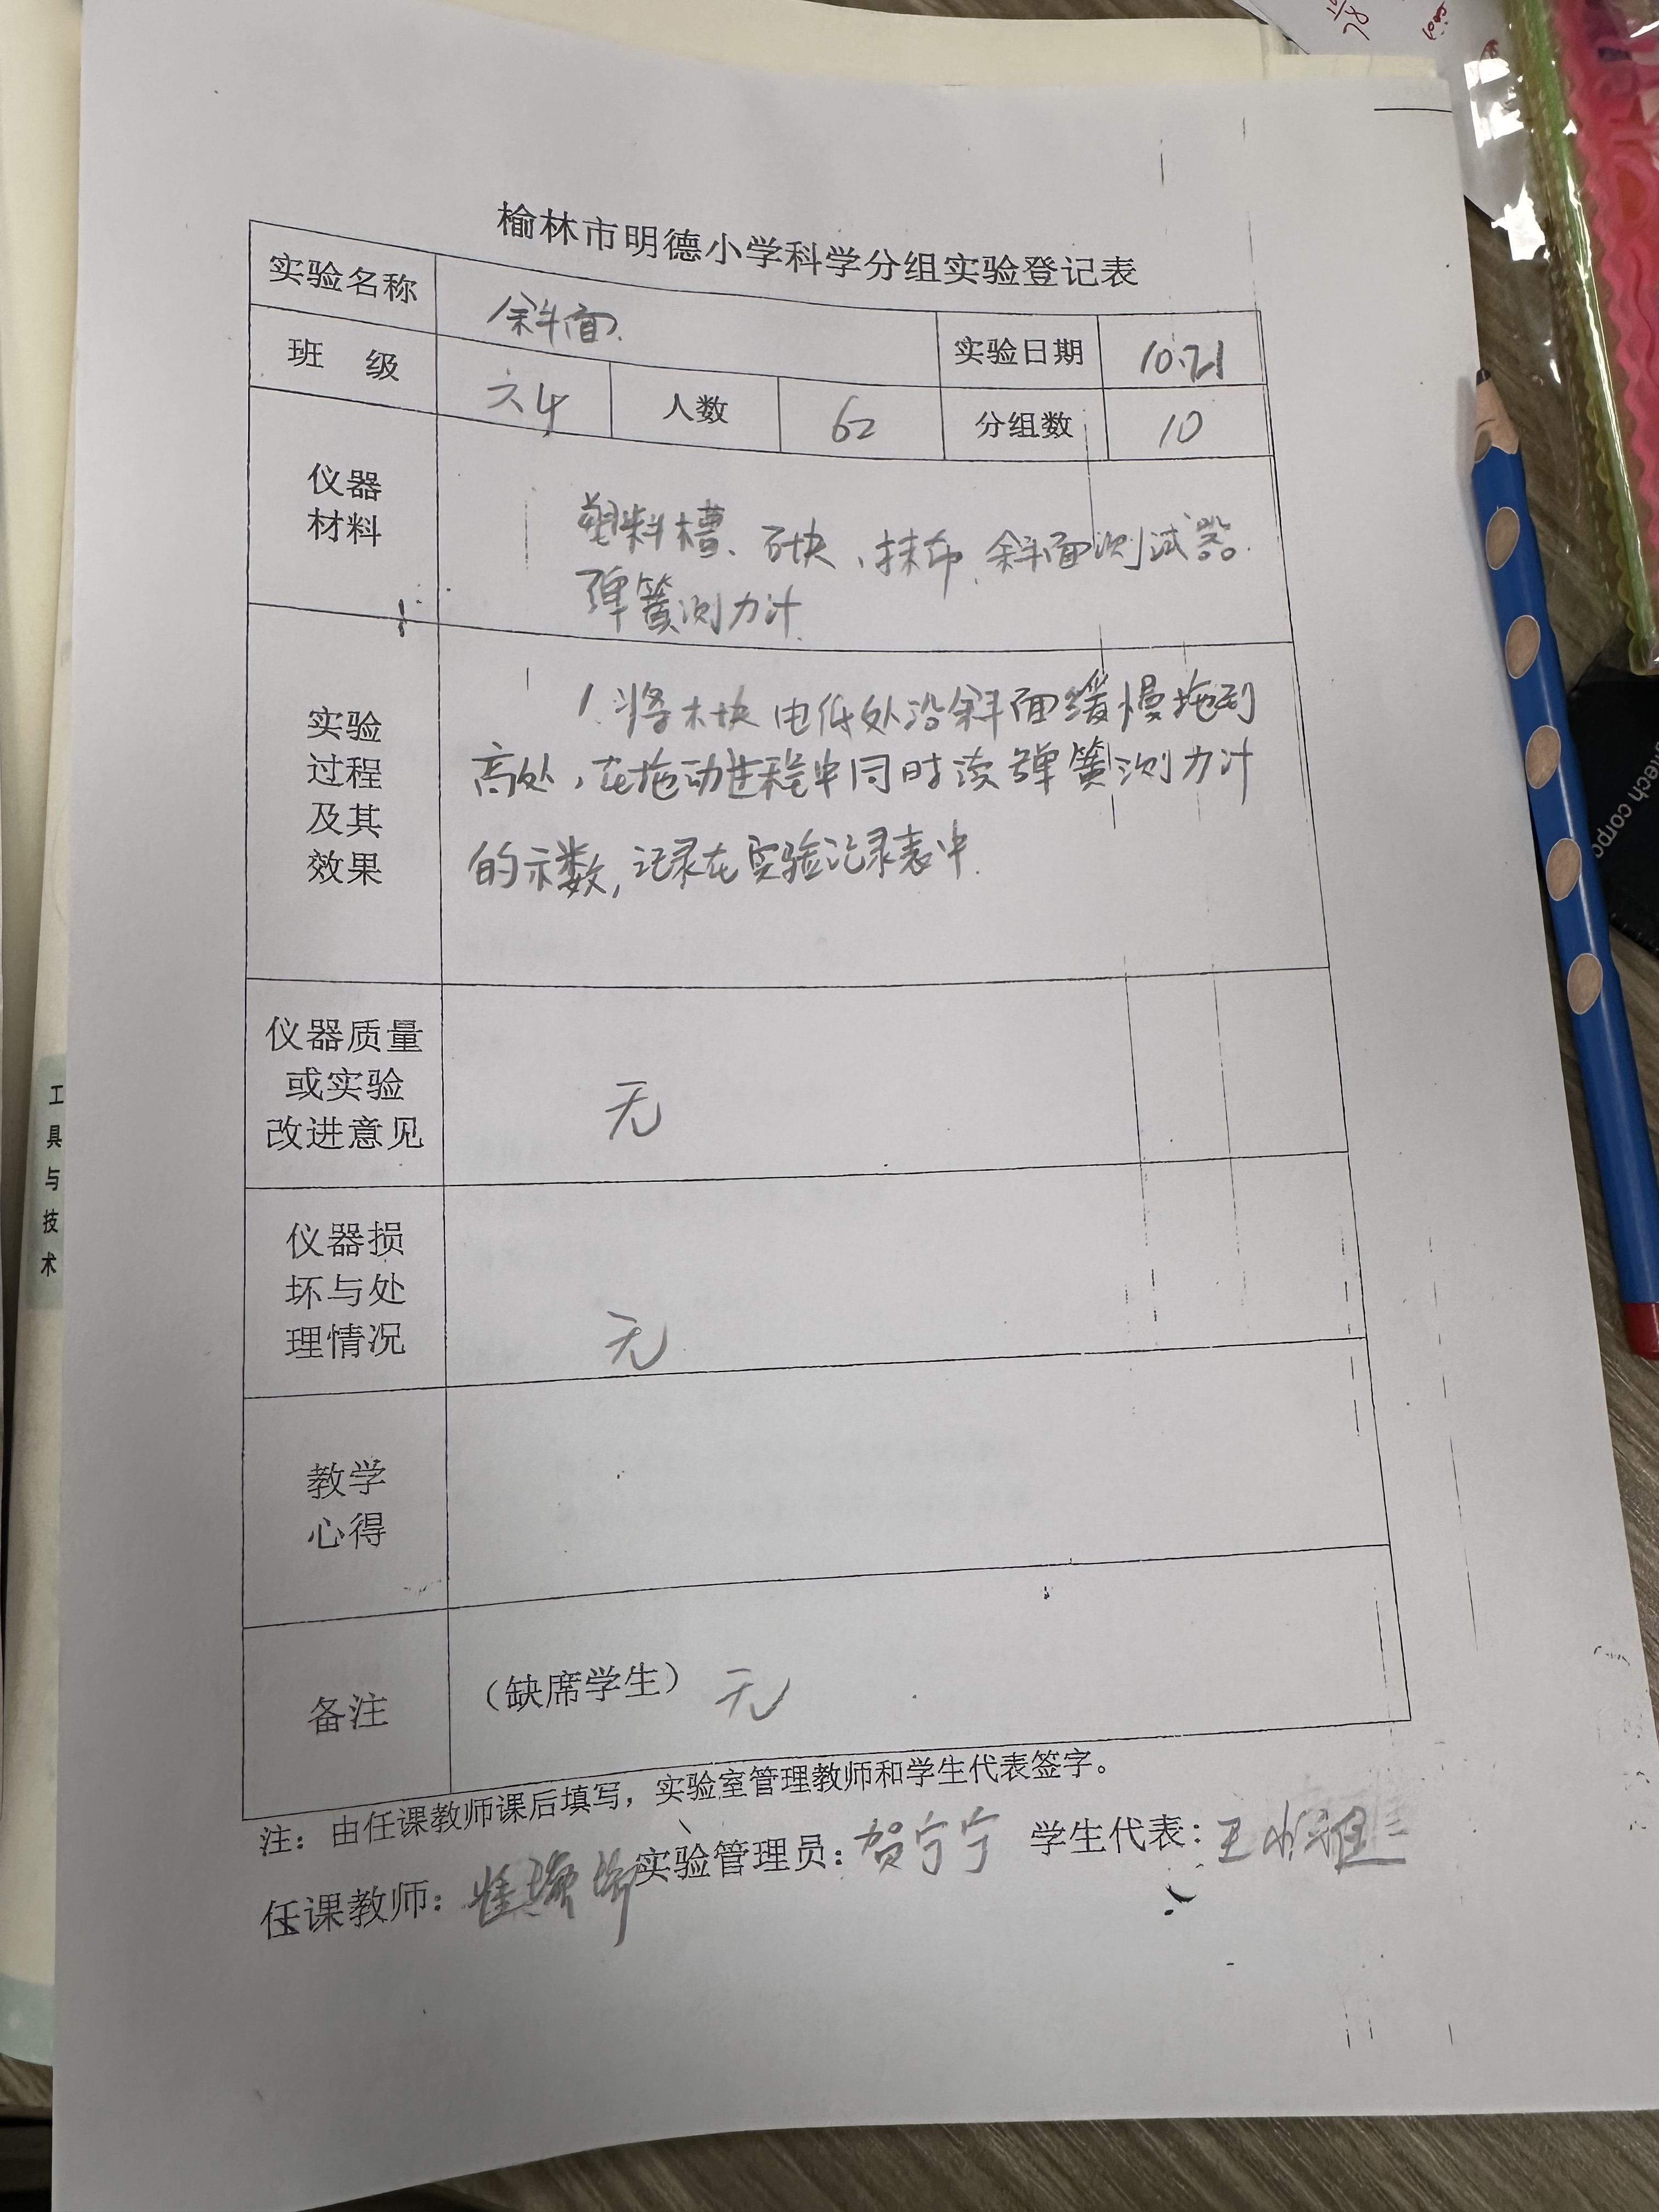 榆林市明德小学科学分组实验登记表
实验名称 斜面. 实验日期 10.21
班 级 六4 人数 62 分组数 10
仪器
材料
塑料槽、砖块、抹布、斜面测试器.
弹簧测力计.
实验
过程
及其
效果
1.将木块由低处沿斜面缓慢拖到
高处,在拖动过程中同时读弹簧测力计
的示数,记录在实验记录表中.
仪器质量
或实验
改进意见
无
仪器损
坏与处
理情况
无
教学
心得
备注
(缺席学生) 无
注:由任课教师课后填写,实验室管理教师和学生代表签字。
任课教师: 实验管理员:贺宁宁 学生代表:王
工具与技术